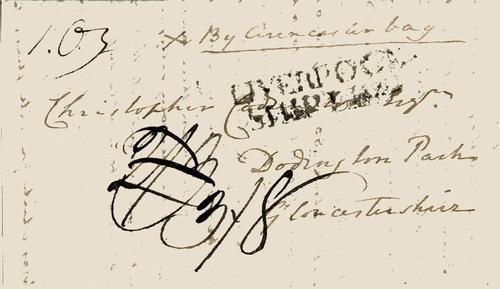 1.03 x By Cirencester bag
LIVERPOOL
SHIP
Christopher Esqr.
Dodington Park
3/8 Gloucestershire